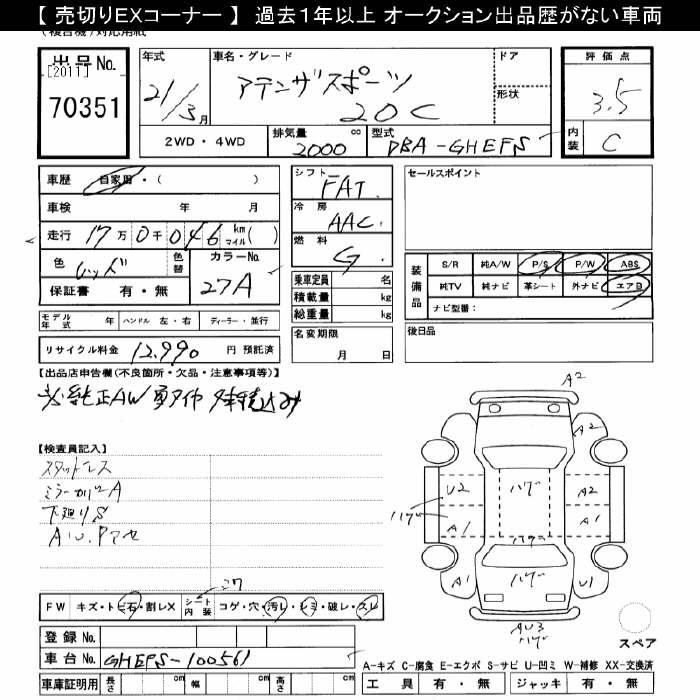 【 売切りEXコーナー 】 過去１年以上 オークション出品歴がない車両
(複合機)対応用紙
出品No.
[2011]
70351
年式
21/3月
車名・グレード
アテンザスポーツ
20C
ドア
形状
評価点
3.5
内装
C
2WD・4WD
排気量 cc
2000
型式
DBA-GHEFS
車歴 自家用・( )
車検 年 月
走行 17万0千046 km マイル( )
色 レッド
色替
カラーNo.
27A
保証書 有・無
シフト
FAT
冷房
AAC
燃料
G
乗車定員 名
積載量 kg
総重量 kg
セールスポイント
装備品
S/R 純A/W P/S P/W ABS
純TV 純ナビ 革シート 外ナビ エアB
ナビ型番：
モデル年式 年 ハンドル 左・右 ディーラー・並行
リサイクル料金 12,990 円 預託済
名変期限
月 日
後日品
【出品店申告欄(不良箇所・欠品・注意事項等)】
純正AW 夏タイヤ
【検査員記入】
スタットレス
ミラーカバーA
下廻りS
A
A2
A2
U2
ハゲ
A2
ハゲ
A1
A1
ハゲ
A1
U1
ハゲ
AU3
ハゲ
スペア
FW キズ・トビ石・割レX
シート内装 コゲ・穴・汚レ・シミ・破レ・スレ
登録No.
車台No. GHEFS-100561
車庫証明用 長さ cm 幅 cm 高さ cm
A-キズ C-腐食 E-エクボ S-サビ U-凹ミ W-補修 XX-交換済
工具 有・無 ジャッキ 有・無